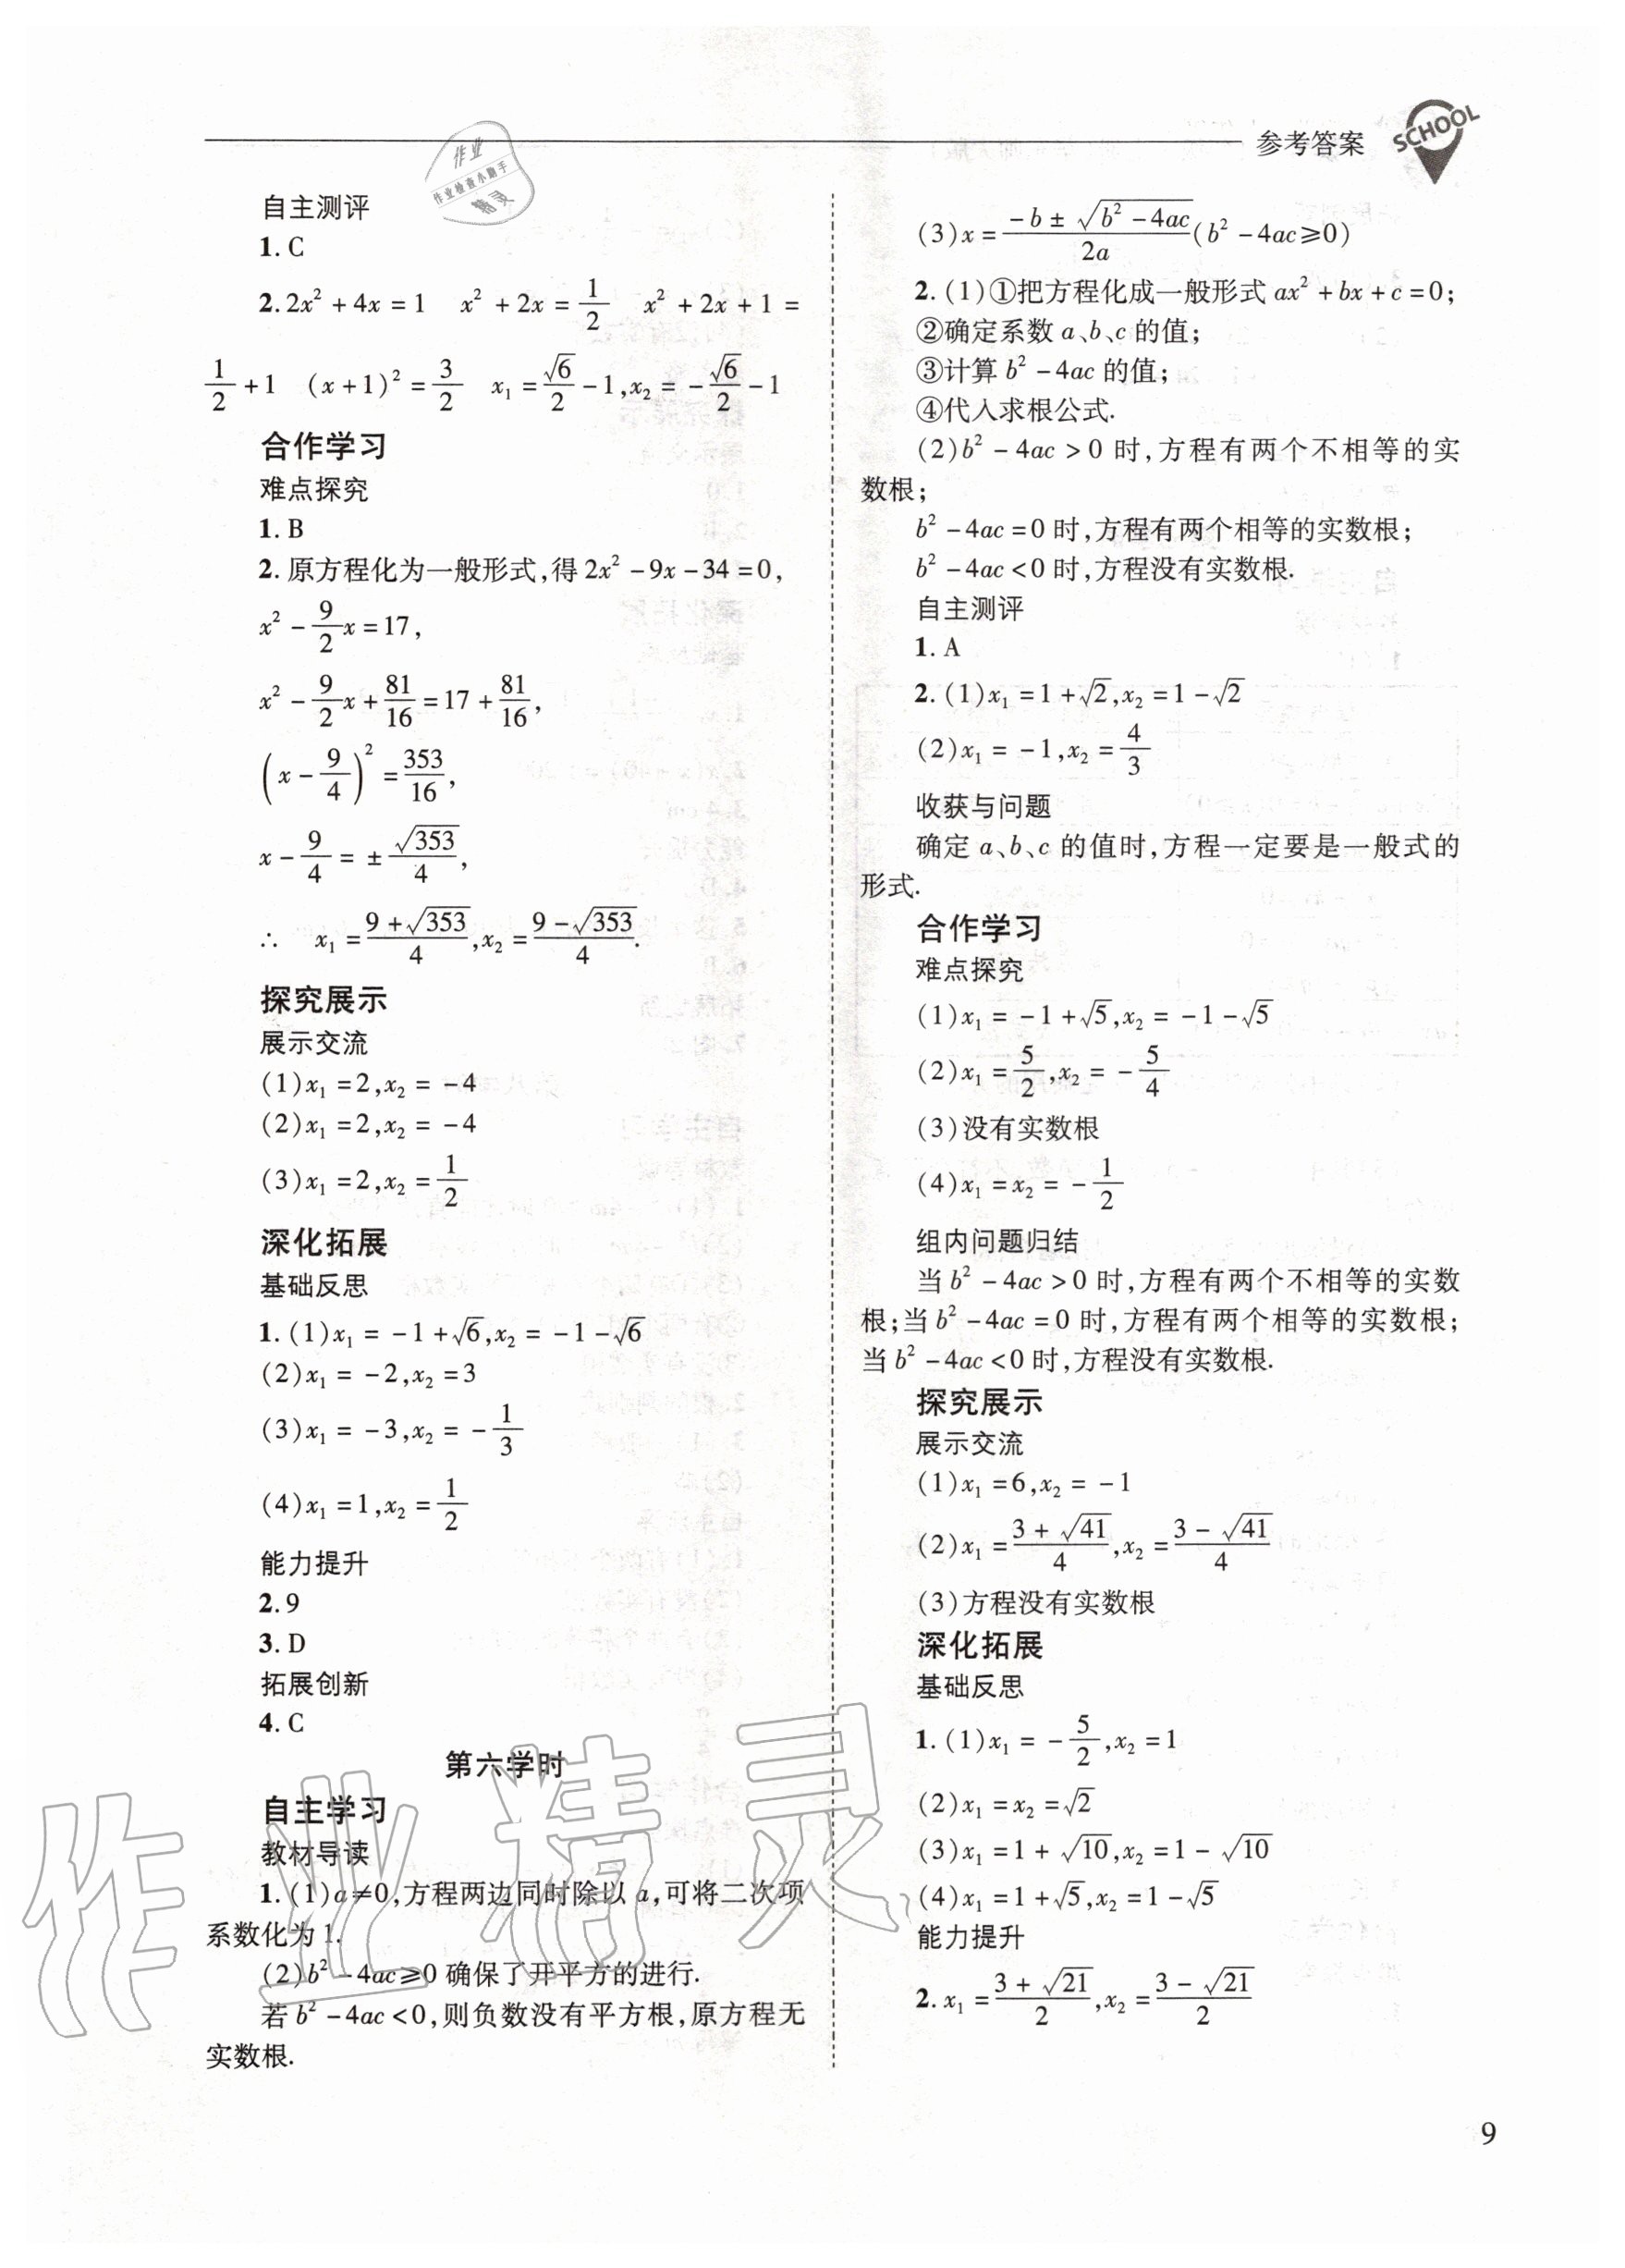 参考答案
SCHOOL
作业
作业检查小助手
精灵
自主测评
1. C
2. 2x² + 4x = 1  x² + 2x = 1/2  x² + 2x + 1 =
1/2 + 1  (x + 1)² = 3/2  x₁ = √6/2 - 1, x₂ = -√6/2 - 1
合作学习
难点探究
1. B
2. 原方程化为一般形式,得 2x² - 9x - 34 = 0,
x² - 9/2 x = 17,
x² - 9/2 x + 81/16 = 17 + 81/16,
(x - 9/4)² = 353/16,
x - 9/4 = ± √353/4,
∴ x₁ = (9 + √353)/4, x₂ = (9 - √353)/4.
探究展示
展示交流
(1) x₁ = 2, x₂ = -4
(2) x₁ = 2, x₂ = -4
(3) x₁ = 2, x₂ = 1/2
深化拓展
基础反思
1. (1) x₁ = -1 + √6, x₂ = -1 - √6
(2) x₁ = -2, x₂ = 3
(3) x₁ = -3, x₂ = -1/3
(4) x₁ = 1, x₂ = 1/2
能力提升
2. 9
3. D
拓展创新
4. C
第六学时
自主学习
教材导读
1. (1) a ≠ 0,方程两边同时除以 a,可将二次项
系数化为 1.
(2) b² - 4ac ≥ 0 确保了开平方的进行.
若 b² - 4ac < 0,则负数没有平方根,原方程无
实数根.
(3) x = (-b ± √(b² - 4ac))/2a (b² - 4ac ≥ 0)
2. (1)①把方程化成一般形式 ax² + bx + c = 0;
②确定系数 a、b、c 的值;
③计算 b² - 4ac 的值;
④代入求根公式.
(2) b² - 4ac > 0 时,方程有两个不相等的实
数根;
b² - 4ac = 0 时,方程有两个相等的实数根;
b² - 4ac < 0 时,方程没有实数根.
自主测评
1. A
2. (1) x₁ = 1 + √2, x₂ = 1 - √2
(2) x₁ = -1, x₂ = 4/3
收获与问题
确定 a、b、c 的值时,方程一定要是一般式的
形式.
合作学习
难点探究
(1) x₁ = -1 + √5, x₂ = -1 - √5
(2) x₁ = 5/2, x₂ = -5/4
(3)没有实数根
(4) x₁ = x₂ = -1/2
组内问题归结
当 b² - 4ac > 0 时,方程有两个不相等的实数
根;当 b² - 4ac = 0 时,方程有两个相等的实数根;
当 b² - 4ac < 0 时,方程没有实数根.
探究展示
展示交流
(1) x₁ = 6, x₂ = -1
(2) x₁ = (3 + √41)/4, x₂ = (3 - √41)/4
(3)方程没有实数根
深化拓展
基础反思
1. (1) x₁ = -5/2, x₂ = 1
(2) x₁ = x₂ = √2
(3) x₁ = 1 + √10, x₂ = 1 - √10
(4) x₁ = 1 + √5, x₂ = 1 - √5
能力提升
2. x₁ = (3 + √21)/2, x₂ = (3 - √21)/2
作业精灵
9